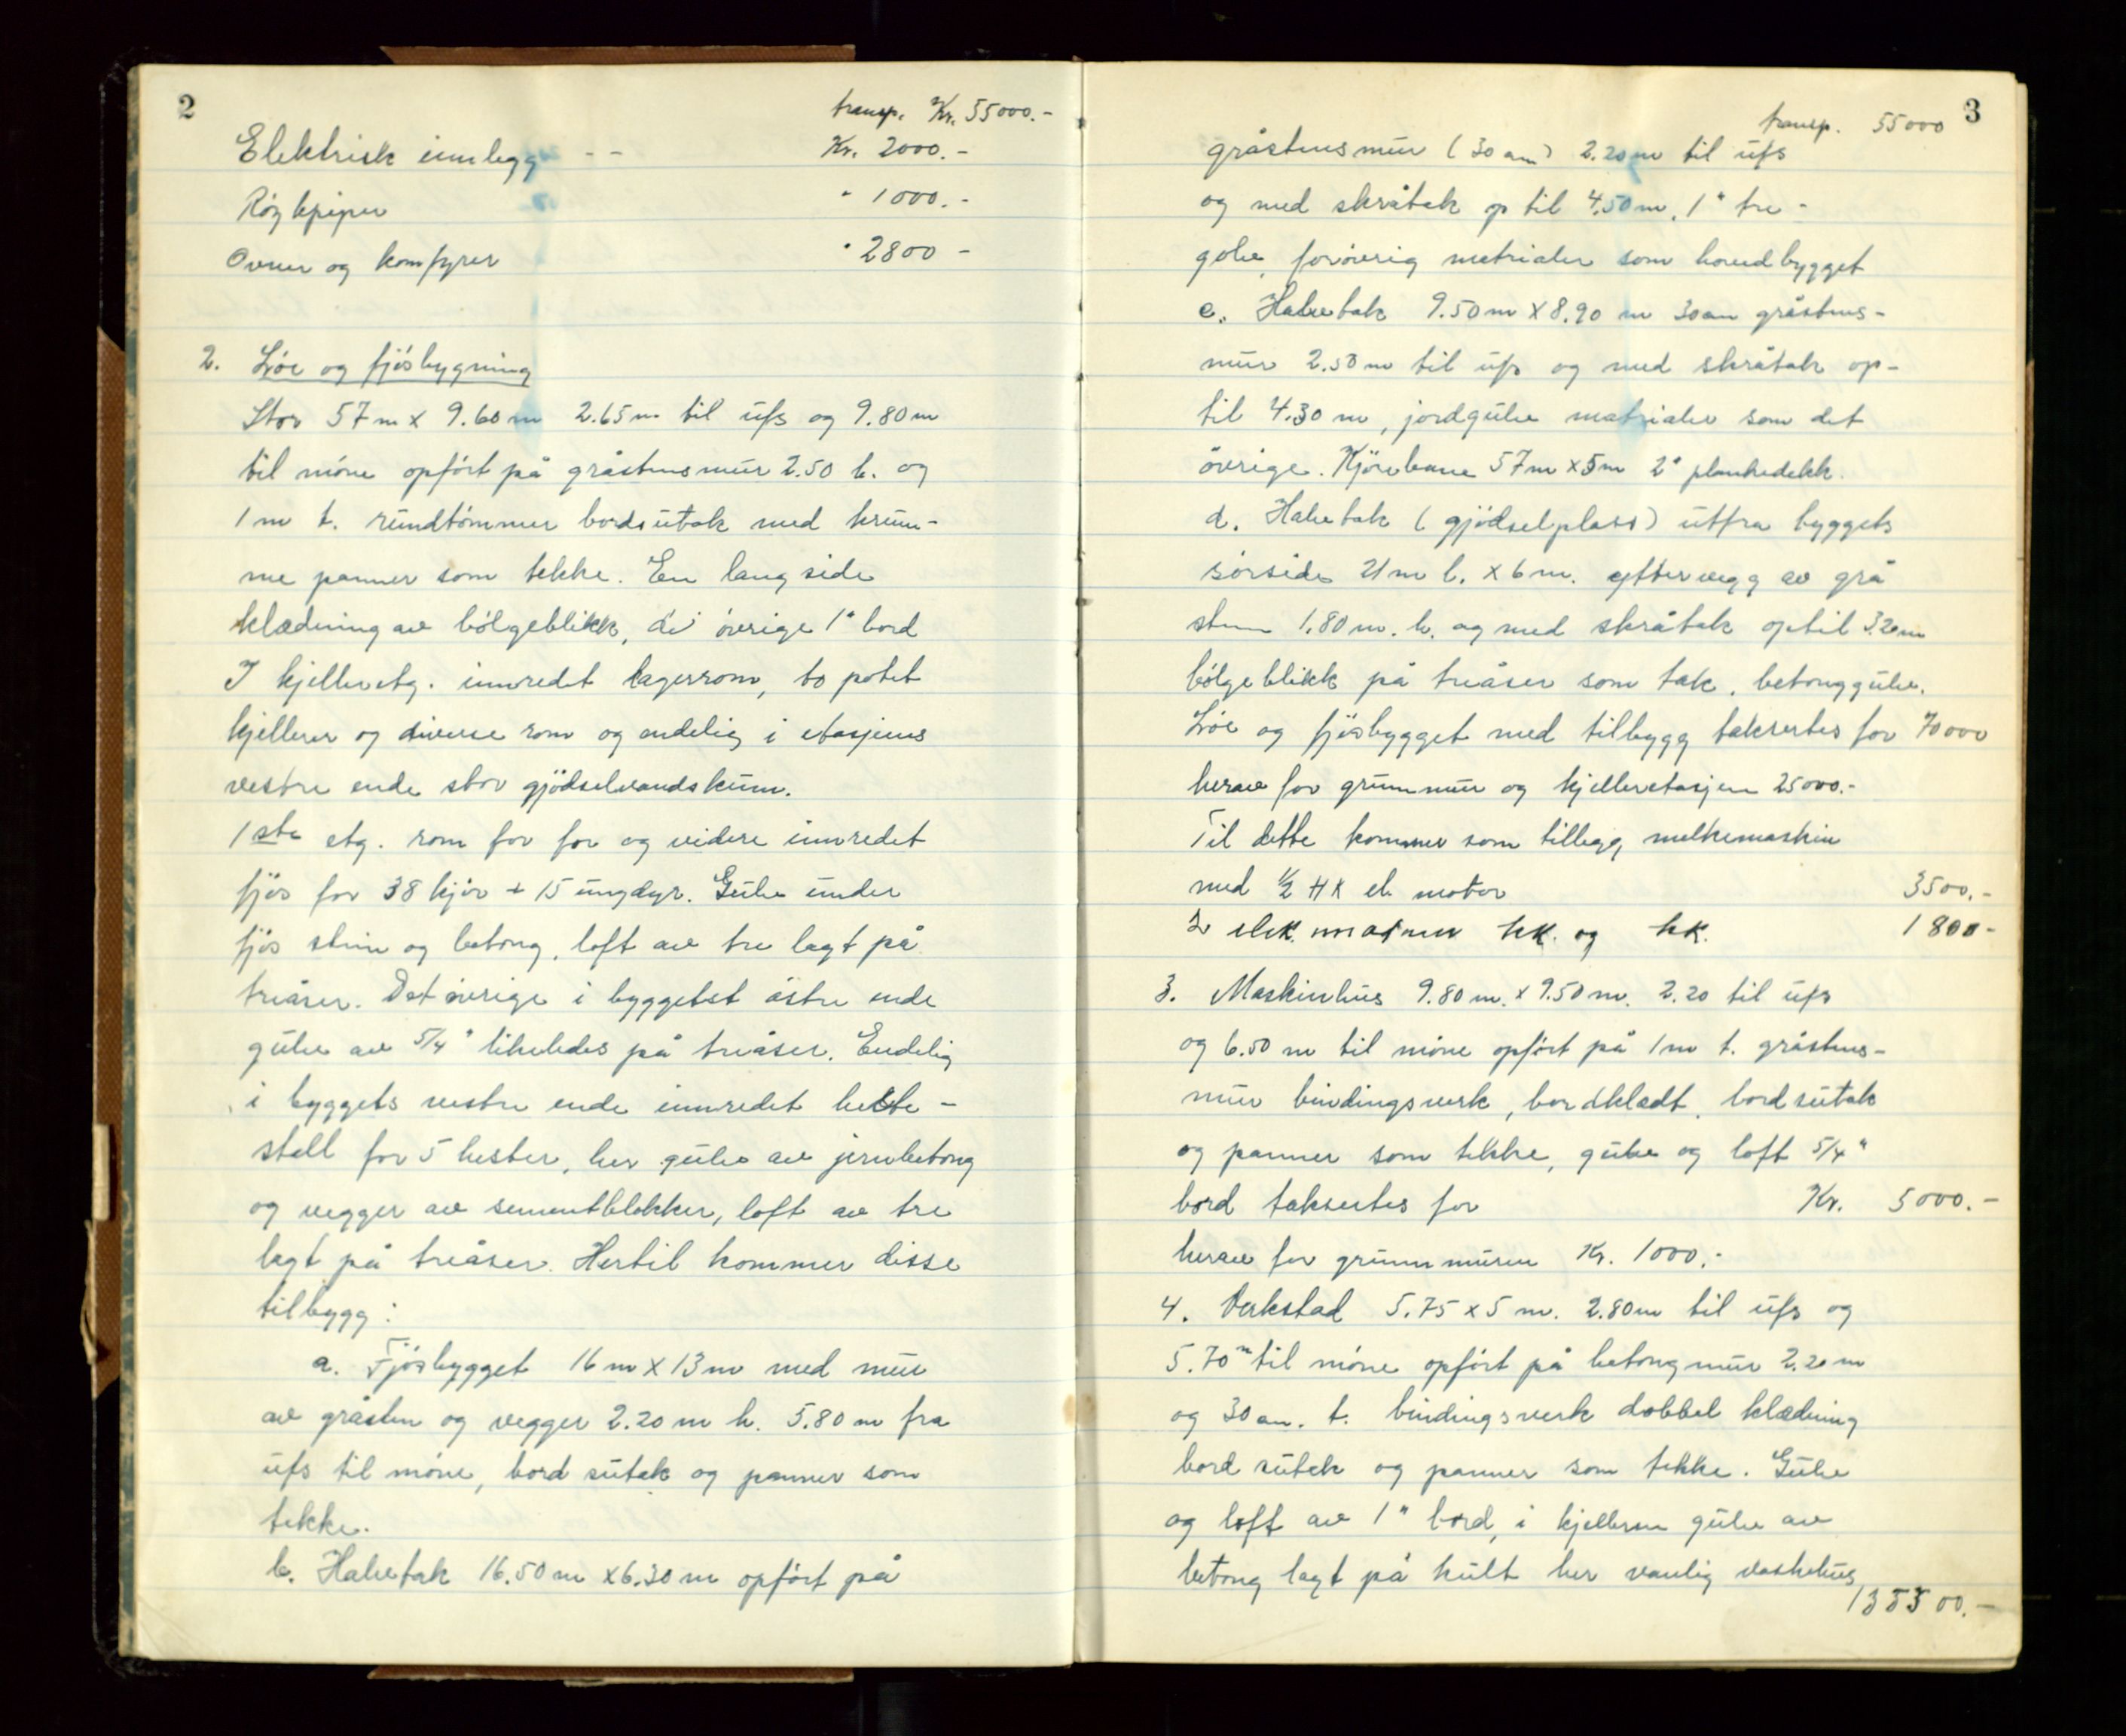 2
transp. Kr. 55000.-
Elektrisk innlegg - - Kr. 2000.-
Røykpiper " 1000.-
Ovner og komfyrer " 2800 -
2. Löe og fjösbygning
Stor 57 m x 9.60 m 2.65 m til ufs og 9.80 m
til möne opfört på gråstensmur 2.50 h. og
1 m t. rundtömmer bordsutak med krum-
me panner som tekke. En langside
klædning av bölgeblikk, de övrige 1" bord
I kjelleretg. innredet lagerrom, to potet
kjellerer og diverse rom og endelig i etasjens
vestre ende stor gjödselvandskum.
1ste etg. rom for for og videre innredet
fjös for 38 kjör + 15 ungdyr. Gulv under
fjös stein og betong, loft av tre lagt på
treåser. Det övrige i byggetst östre ende
gulv av 5/4" likeledes på treåser. Endelig
i byggets vestre ende innredet heste-
stall for 5 hester, her gulv av jernbetong
og vegger av sementblokker, loft av tre
lagt på treåser. Hertil kommer disse
tilbygg:
a. Fjösbygget 16 m x 13 m med mur
av gråsten og vegger 2.20 m h. 5.80 m fra
ufs til möne, bord sutak og panner som
tekke.
b. Halvtak 16.50 m x 6.30 m opfört på
3
transp. 55000
gråstensmur (30 cm) 2.20 m til ufs
og med skråtak op til 4.50 m, 1" tre-
golv, forövrig matrialer som hovedbygget
c. Halvtak 9.50 m x 8.90 m 30 cm gråstens-
mur 2.50 m til ufs og med skråtak op-
til 4.30 m, jordgulv matrialer som det
övrige. Kjörebane 57 m x 5 m 2" plankedekk.
d. Halvtak (gjödselplass) utfra byggets
sörside 21 m l. x 6 m. yttervegg av grå
sten 1.80 m. h. og med skråtak optil 3.20 m
bölgeblikk på treåser som tak, betonggulv.
Löe og fjösbygget med tilbygg taksertes for 70000
herav for grunnmur og kjelleretasjen 25000.-
Til dette kommer som tillegg melkemaskin
med 1/2 HK el. motor 3500.-
2 elek. motorer hk. og hk. 1800-
3. Maskinhus 9.80 m. x 9.50 m. 2.20 til ufs
og 6.50 m til möne opfört på 1 m t. gråstens-
mur bindingsverk, bordklædt, bordsutak
og panner som tekke, gulv og loft 5/4"
bord taksertes for Kr. 5000.-
herav for grunnmuren Kr. 1000.-
4. Verkstad 5.75 x 5 m. 2.80 m til ufs og
5.70 m til möne opfört på betongmur 2.20 m
og 30 cm. t. bindingsverk dobbel klædning
bord sutak og panner som tekke. Gulv
og loft av 1" bord, i kjelleren gulv av
betong lagt på kult her vanlig vaskehus
135300.-